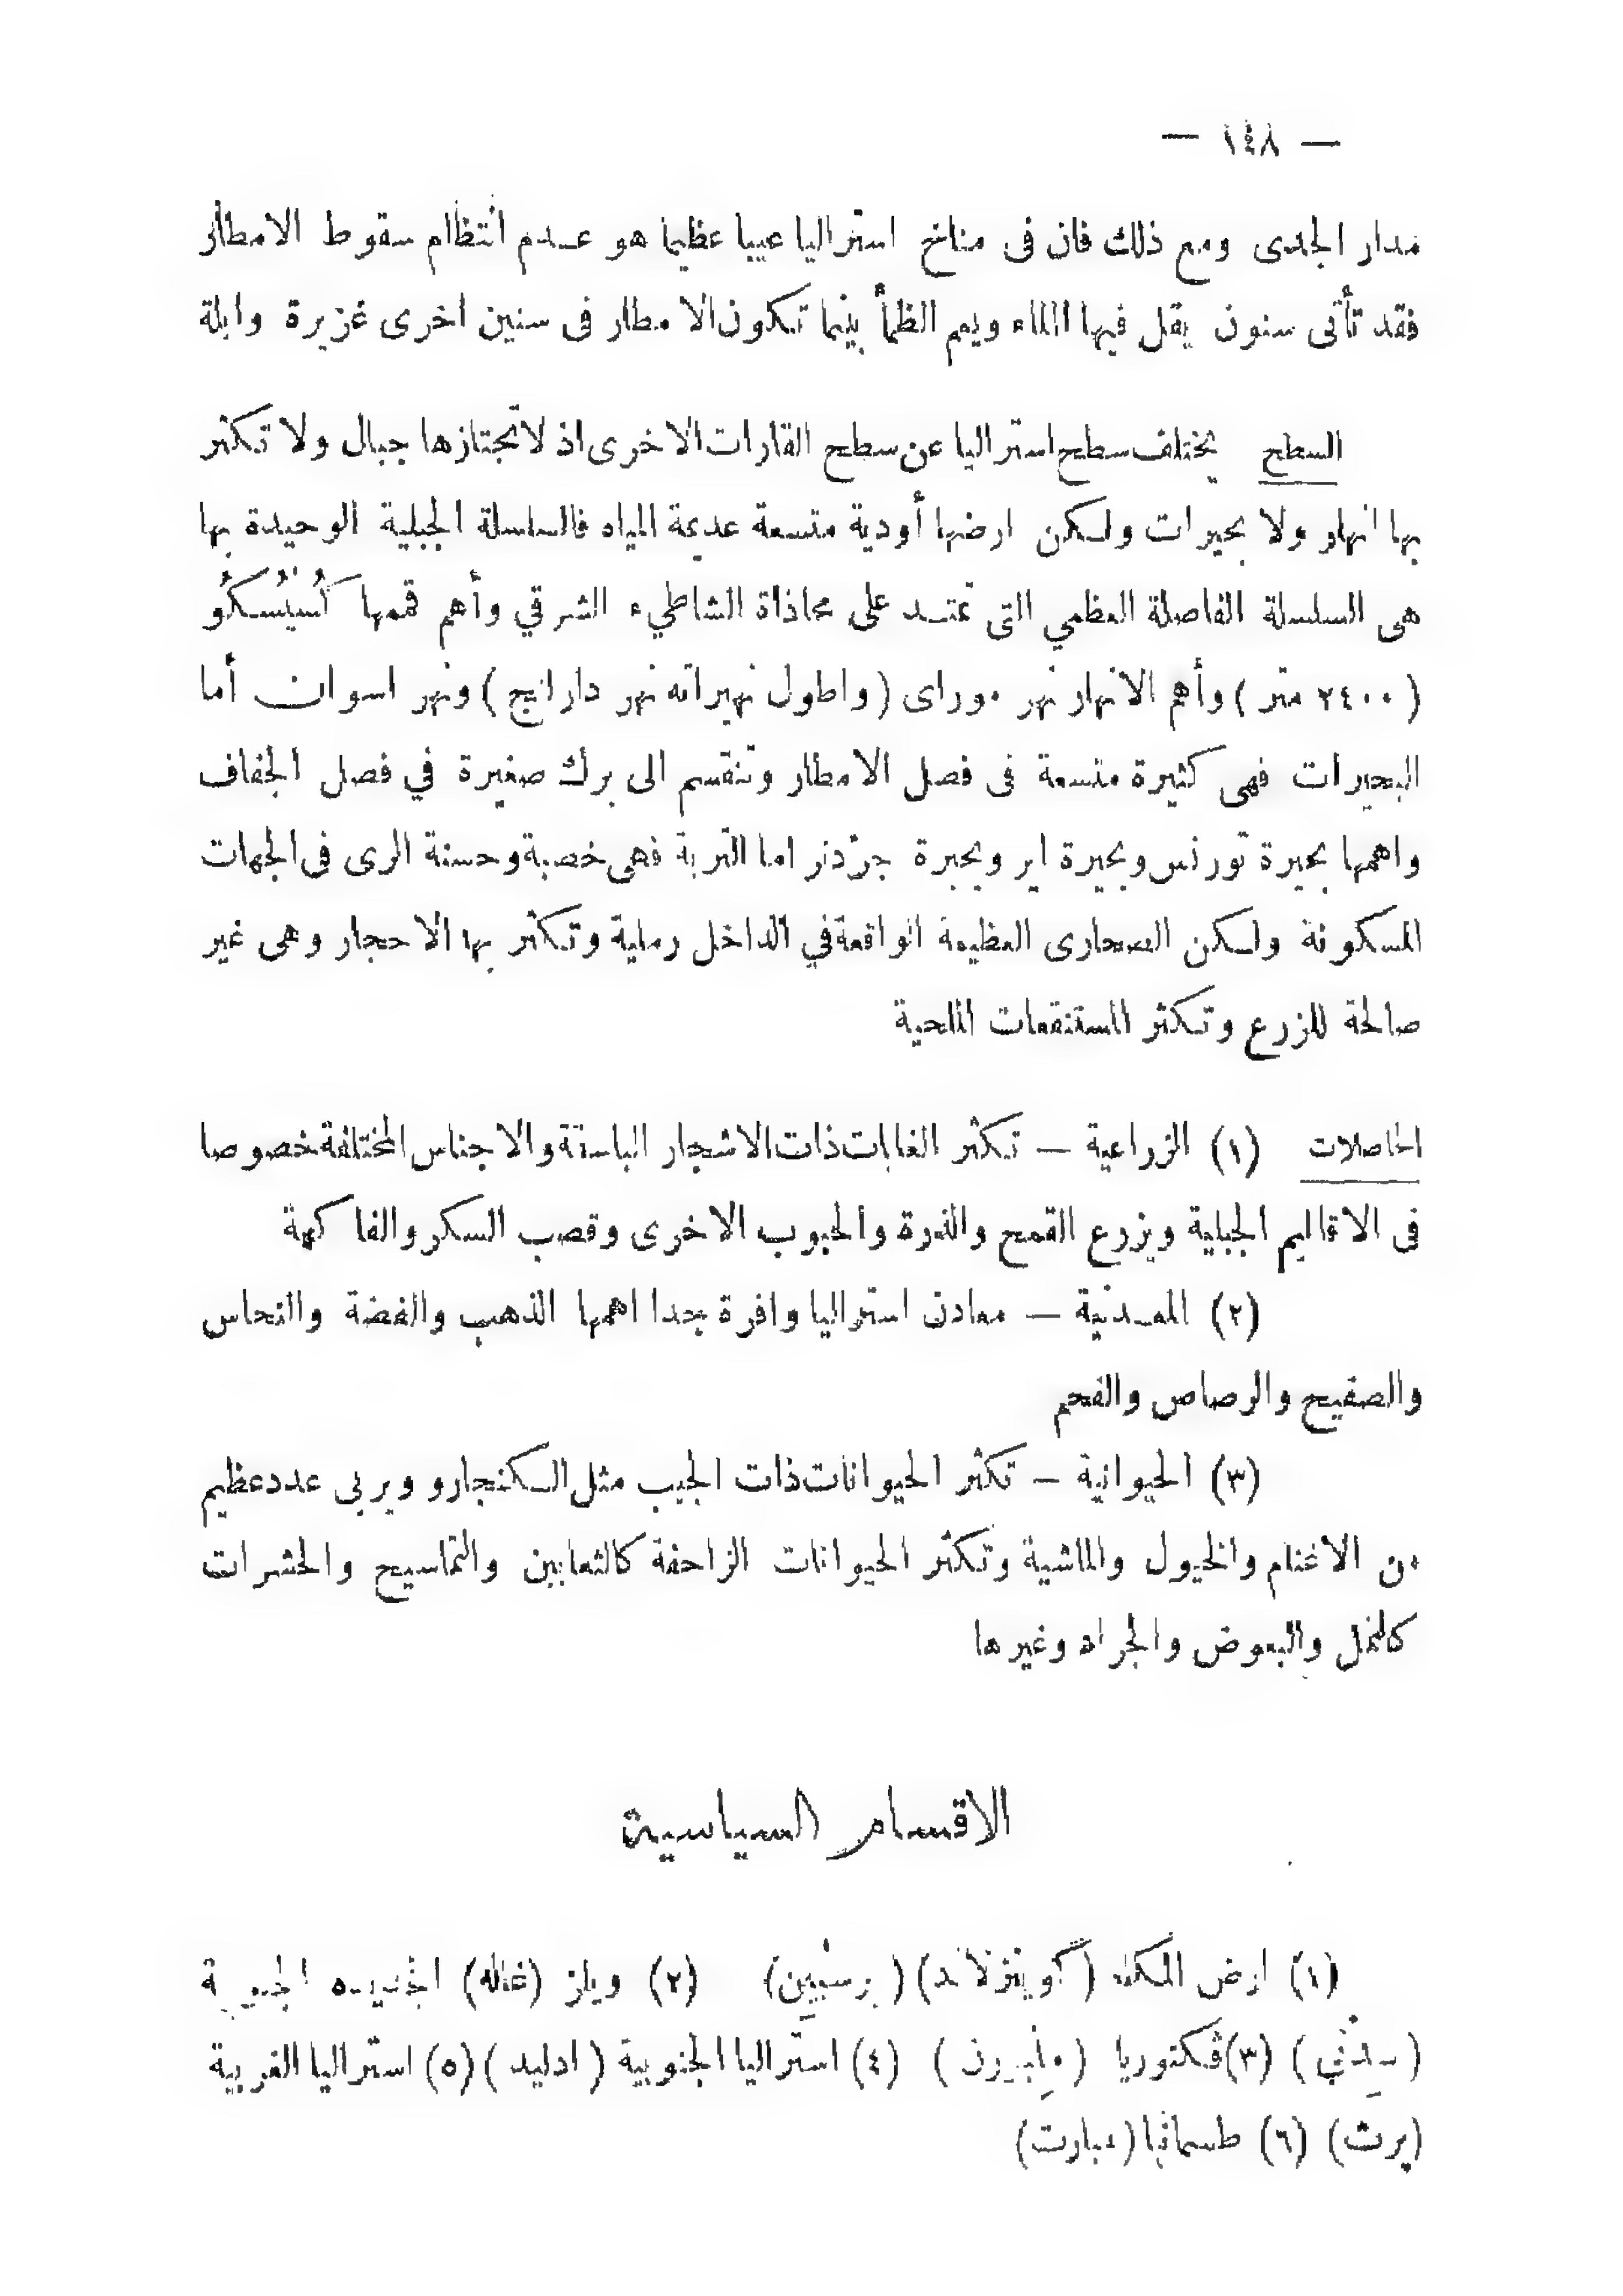 — ١٤٨ —
مدار الجدى ومع ذلك فان فى مناخ استراليا عيبا عظيما هو عدم انتظام سقوط الامطار
فقد تأتى سنون يقل فيها الماء ويعم الظمأ بينما تكون الامطار فى سنين اخرى غزيرة وابلة
السطح يختلف سطح استراليا عن سطح القارات الاخرى اذ لا تجتازها جبال ولا تكثر
بها انهار ولا بحيرات ولكن ارضها أودية متسعة عديمة المياه فالسلسلة الجبلية الوحيدة بها
هى السلسلة الفاصلة العظمي التى تمتد على محاذاة الشاطيء الشرقي وأهم قممها
( ٢٤٠٠ متر ) وأهم الانهار نهر موراى ( واطول نهيراته نهر دارلنج ) ونهر اسوان أما
البحيرات فهى كثيرة متسعة فى فصل الامطار وتنقسم الى برك صغيرة في فصل الجفاف
واهمها بحيرة تورنس وبحيرة اير وبحيرة جردنر اما التربة فهى خصبة وحسنة الرى فى الجهات
المسكونة ولكن الصحارى العظيمة الواقعة في الداخل رملية وتكثر بها الاحجار وهى غير
صالحة للزرع وتكثر المستنقعات الملحية
الحاصلات (١) الزراعية — تكثر الغابات ذات الاشجار الباسقة والاجناس المختلفة خصوصا
فى الاقاليم الجبلية ويزرع القمح والذرة والحبوب الاخرى وقصب السكر والفاكهة
(٢) المعدنية — معادن استراليا وافرة جدا اهمها الذهب والفضة والنحاس
والصفيح والرصاص والفحم
(٣) الحيوانية — تكثر الحيوانات ذات الجيب مثل الكنجارو ويربى عدد عظيم
من الاغنام والخيول والماشية وتكثر الحيوانات الزاحفة كالثعابين والتماسيح والحشرات
كالنمل والبعوض والجراد وغيرها
الاقسام السياسية
(١) ارض الملكة ( كوينزلاند ) ( (٢) ويلز (غاله) الجديده الجنوبية
( سِدْني ) (٣) ڤكتوريا ( ملبورن ) (٤) استراليا الجنوبية ( ادليد ) (٥) استراليا الغربية
(پرث) (٦) طسمانيا